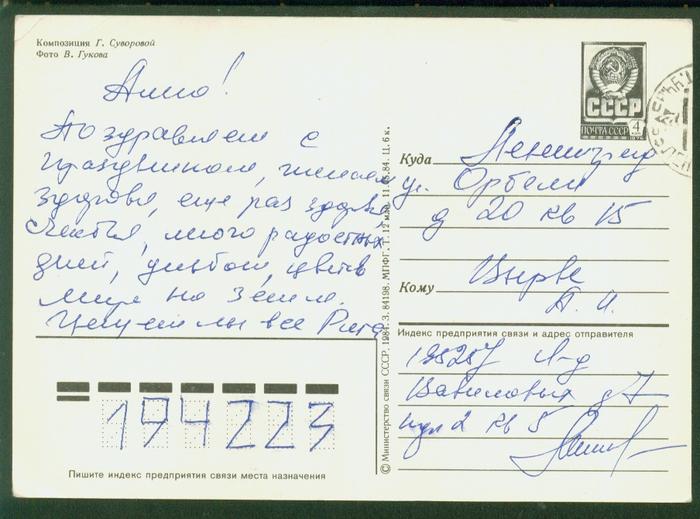 Композиция Г. Суворовой
Фото В. Гукова
Алло!
Поздравляем с
праздником, желаем
здоровья, еще раз здоровья
счастья, много радостных
дней, улыбок, цветов
мира на земле.
Целуем мы все Рита
ПОЧТА СССР
СССР
4
коп
1976
Куда Ленинград
ул. Орбели
д 20 кв 15
Кому
Индекс предприятия связи и адрес отправителя
195257 Л-д
Вавиловых д 7
кв 5
194223
Пишите индекс предприятия связи места назначения
© Министерство связи СССР. 1984. З. 84198. МПФГ. Т. 12 млн. Ц. 6 к.